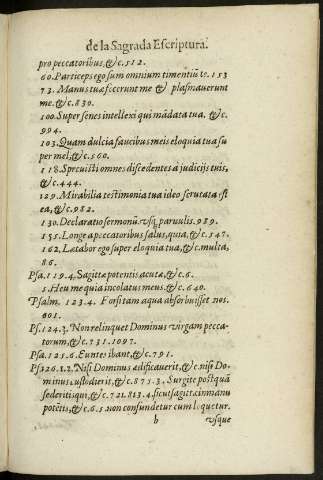 de la Sagrada Escriptura.
pro peccatoribus, &c. 512.
60. Particeps ego sum omnium timentiũ te. 153
73. Manus tuæ fecerunt me & plasmaverunt
me. &c. 830.
100. Super senes intellexi qui mãdata tua. &c.
994.
103. Quam dulcia faucibus meis eloquia tua su
per mel, &c. 560.
118. Sprevisti omnes discedentes à judicijs tuis,
&c. 444.
129. Mirabilia testimonia tua ideo scrutata est
ea, &c. 982.
130. Declaratio sermonũ. usq; parvulis. 989.
155. Longe a peccatoribus salus, quia, &c. 547.
162. Lætabor ego super eloquia tua, &c. multa,
86.
Psa. 119. 4. Sagittæ potentis acutæ, &c. 6.
5. Heu me quia incolatus meus, &c. 640.
Psalm. 123. 4. Forsitam aqua absorbuisset nos.
601.
Ps. 124. 3. Non relinquet Dominus virgam pecca-
torum, &c. 731. 1097.
Psa. 125. 6. Euntes ibant, &c. 791.
Ps. 126. 1. 2. Nisi Dominus ædificaverit, &c. nisi Do-
minus custodierit, &c. 875. 3. Surgite postquã
sederitis qui, &c. 721. 813. 4. sicut sagitt. in manu
potẽtis, &c. 6. 5. non confundetur cum loquetur.
b usque